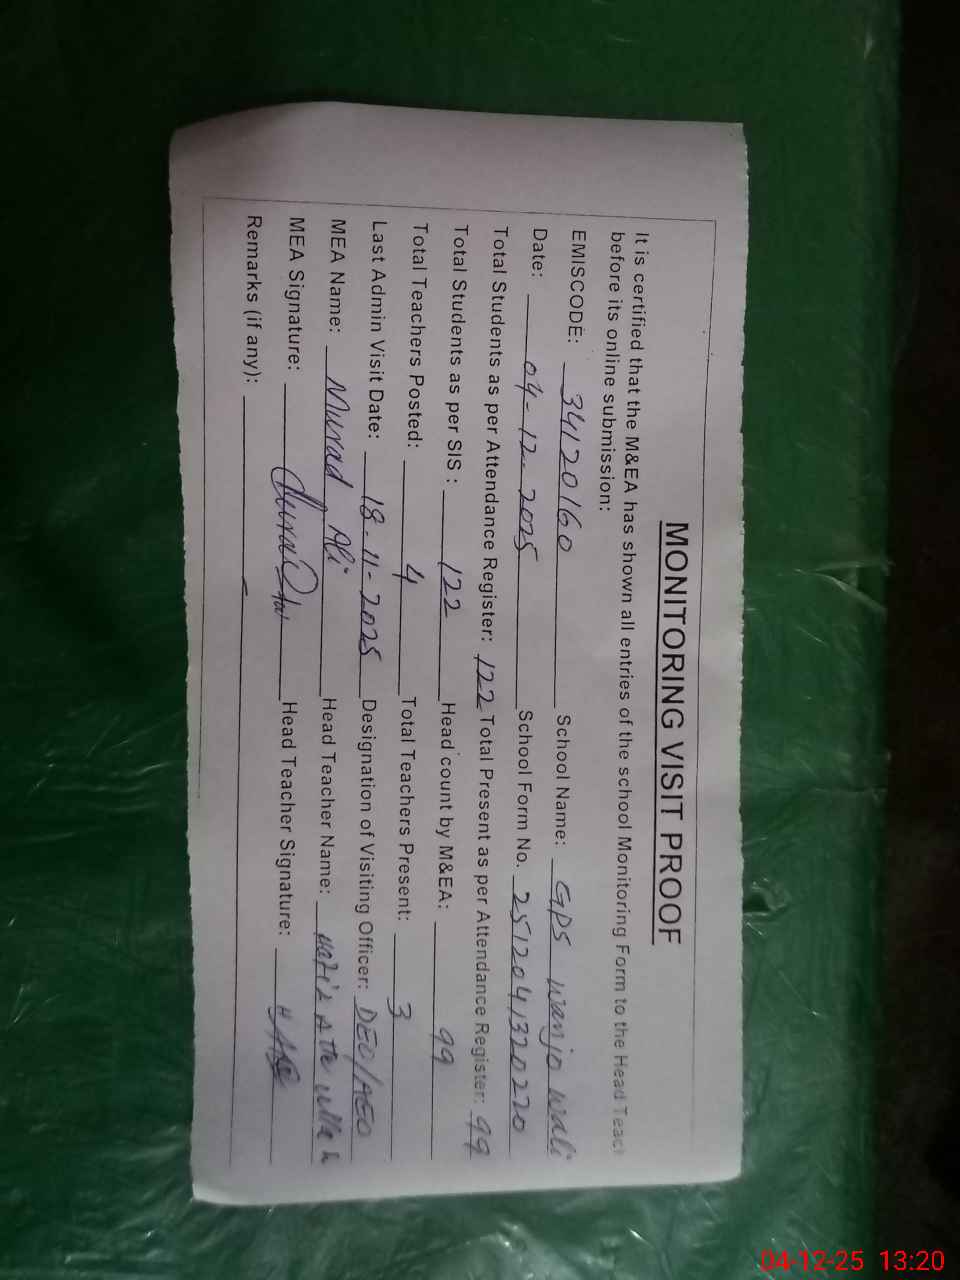 MONITORING VISIT PROOF
It is certified that the M&EA has shown all entries of the school Monitoring Form to the Head Teac
before its online submission:
EMISCODE: 34120160 School Name: GPS Wanjo Wali
Date: 04-12-2025 School Form No. 2512041320220
Total Students as per Attendance Register: 122 Total Present as per Attendance Register: 99
Total Students as per SIS : 122 Head count by M&EA: 99
Total Teachers Posted: 4 Total Teachers Present: 3
Last Admin Visit Date: 18-11-2025 Designation of Visiting Officer: DEO/AEO
MEA Name: Murad Ali Head Teacher Name:
MEA Signature: Head Teacher Signature:
Remarks (if any): -
04-12-25 13:20